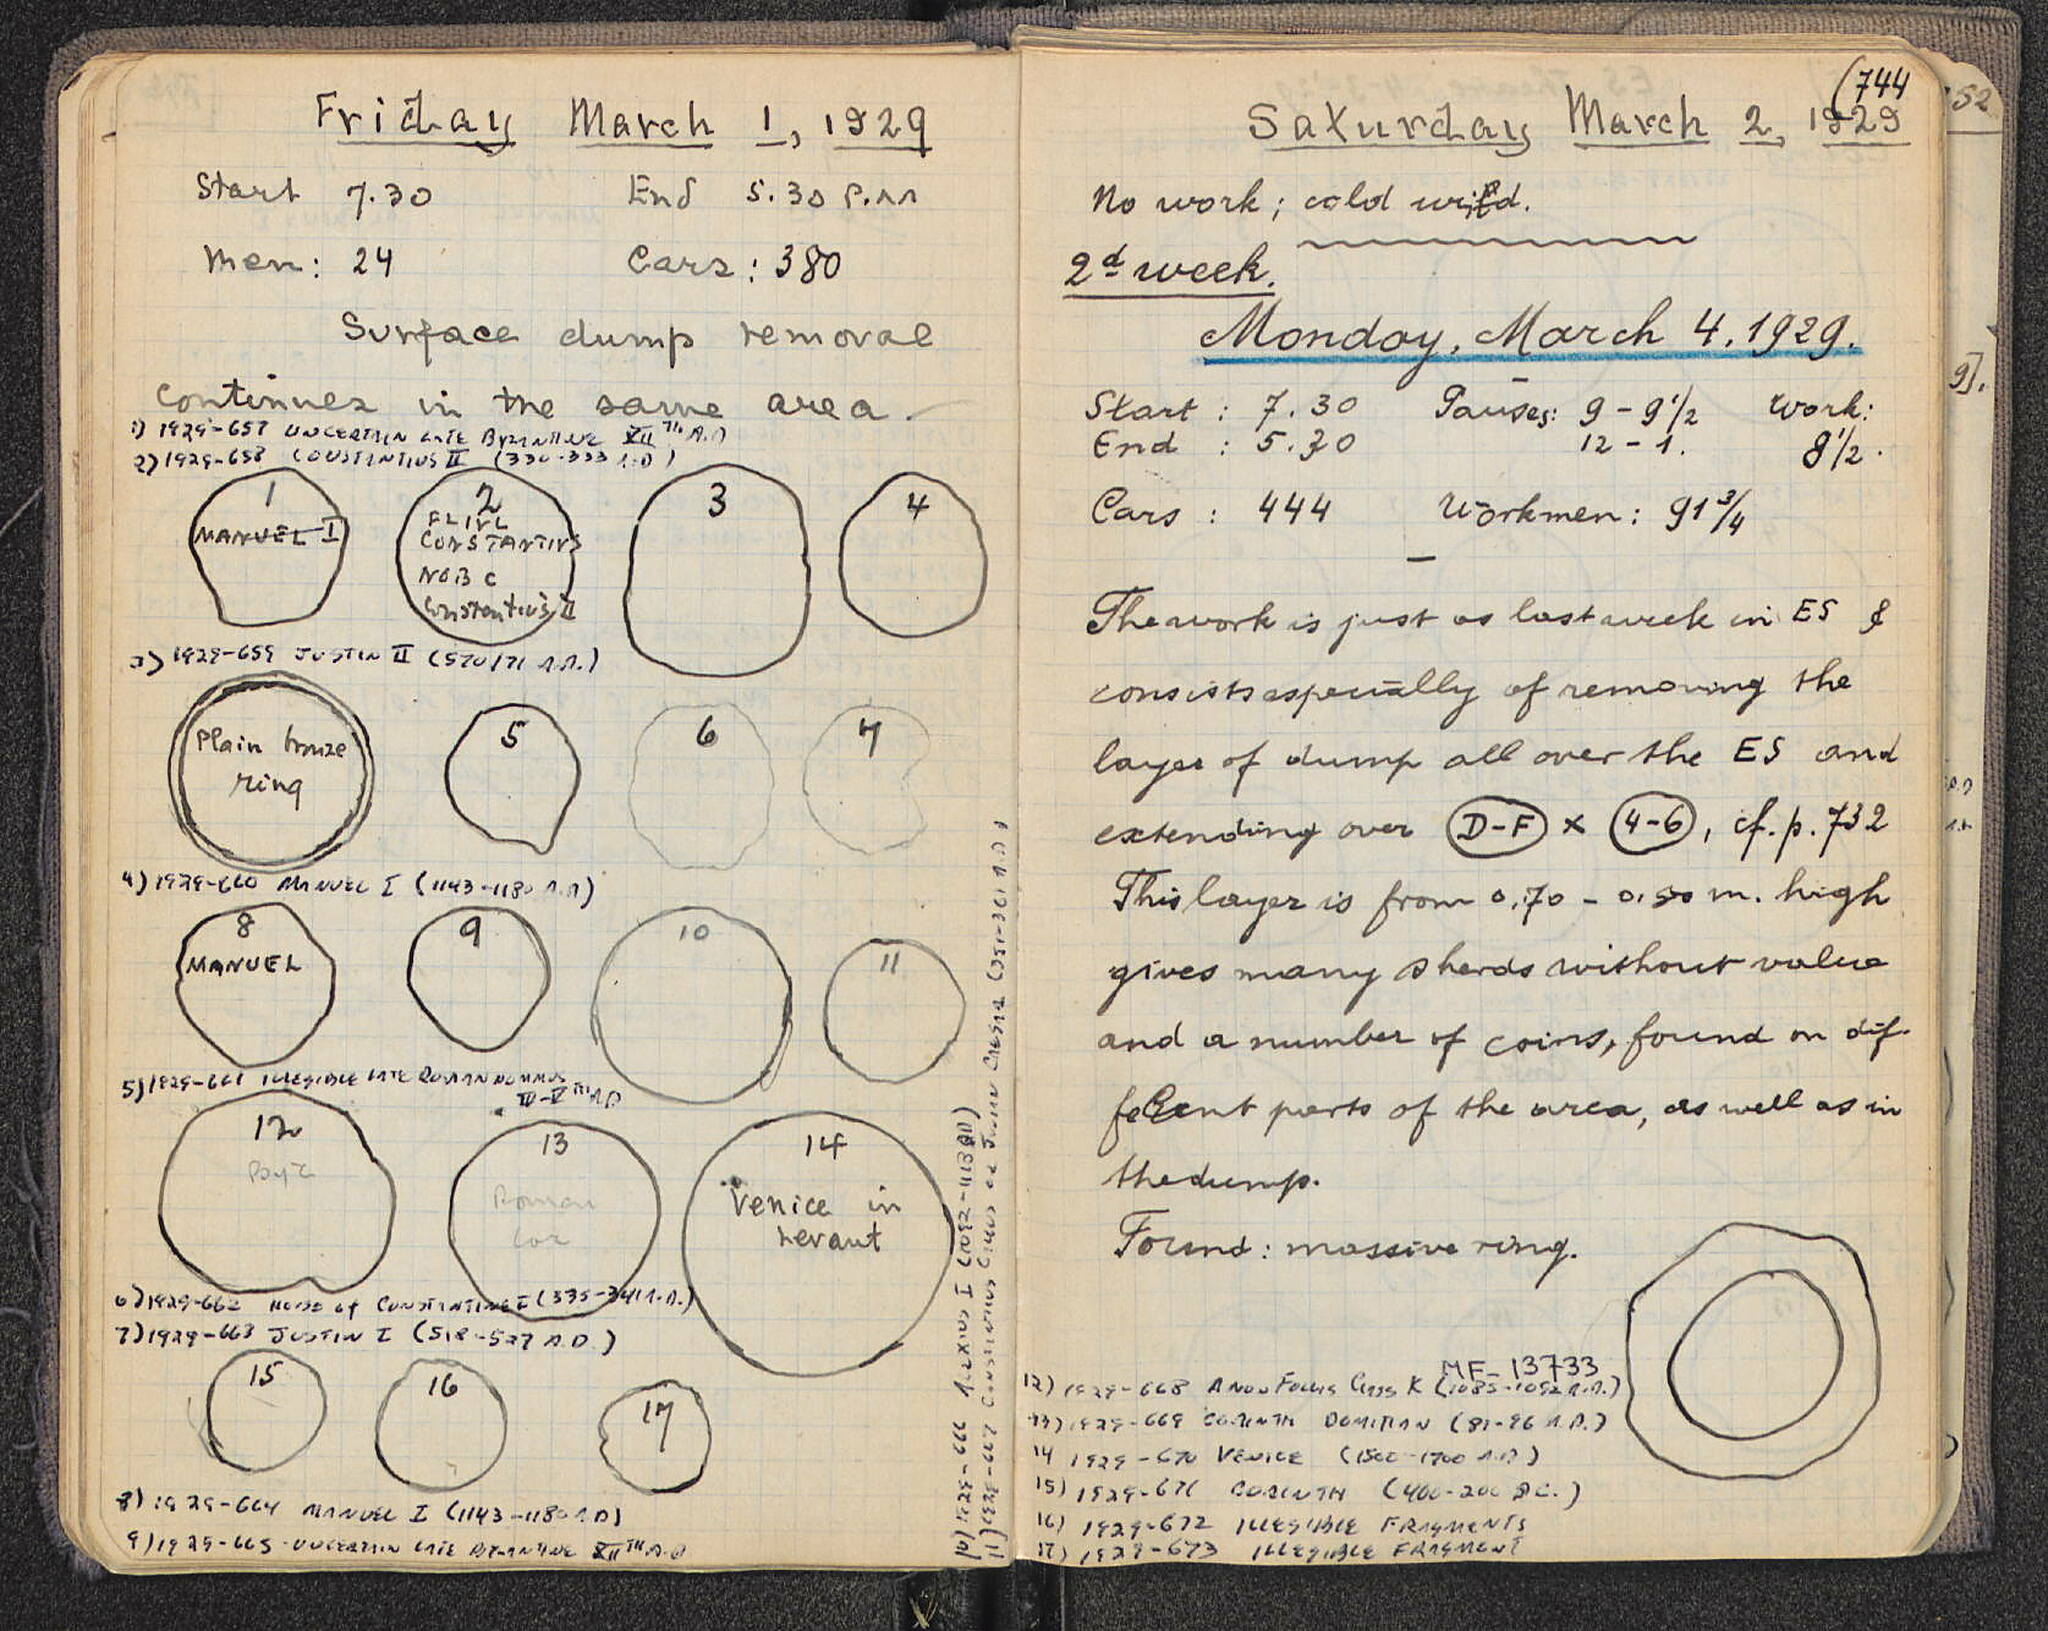 Friday March 1, 1929
Start 7.30 End 5.30 P.M
Men: 24 Cars: 380
Surface dump removal
continues in the same area.
1) 1929-657 UNCERTAIN LATE BYZANTINE XII TH A.D
2) 1929-658 CONSTANTIUS II (330-333 A.D)
1
MANUEL I
2
FL IVL
CONSTANTIVS
NOB C
Constantius II
3
4
3) 1929-659 JUSTIN II (570/71 A.D.)
Plain bronze
ring
5
6
7
4) 1929-660 MANUEL I (1143-1180 A.D)
8
MANUEL
9
10
11
5) 1929-661 ILLEGIBLE LATE ROMAN NUMMUS
IV-V TH A.D
12
Byz
13
Roman
Cor
14
Venice in
Levant
6) 1929-662 HOUSE OF CONSTANTINE I (335-341 A.D.)
7) 1929-663 JUSTIN I (518-527 A.D.)
15
16
17
8) 1929-664 MANUEL I (1143-1180 A.D)
9) 1929-665 UNCERTAIN LATE BYZANTINE XII TH A.D
10) 1929-666 ALEXIUS I (1092-1118 A.D)
11) 1929-667 CONSTANTIUS GALLUS OR JULIAN CAESAR (351-361 A.D)
(744
Saturday March 2, 1929
No work; cold wind.
2d week.
Monday, March 4. 1929.
Start : 7.30 Pauses: 9 - 9 1/2 Work:
End : 5.30 12 - 1. 8 1/2.
Cars : 444 Workmen: 91 3/4
The work is just as last week in ES &
consists especially of removing the
layer of dump all over the ES and
extending over D-F x 4-6, cf. p. 732
This layer is from 0,70 - 0,50 m. high
gives many sherds without value
and a number of coins, found on dif-
ferent parts of the area, as well as in
the dump.
Found: massive ring.
MF-13733
12) 1929-668 ANON FOLLIS CLASS K (1085-1092 A.D.)
13) 1929-669 CORINTH DOMITIAN (81-96 A.D.)
14 1929-670 VENICE (1500-1700 A.D)
15) 1929-671 CORINTH (400-200 B.C.)
16) 1929-672 ILLEGIBLE FRAGMENTS
17) 1929-673 ILLEGIBLE FRAGMENT
52
9].